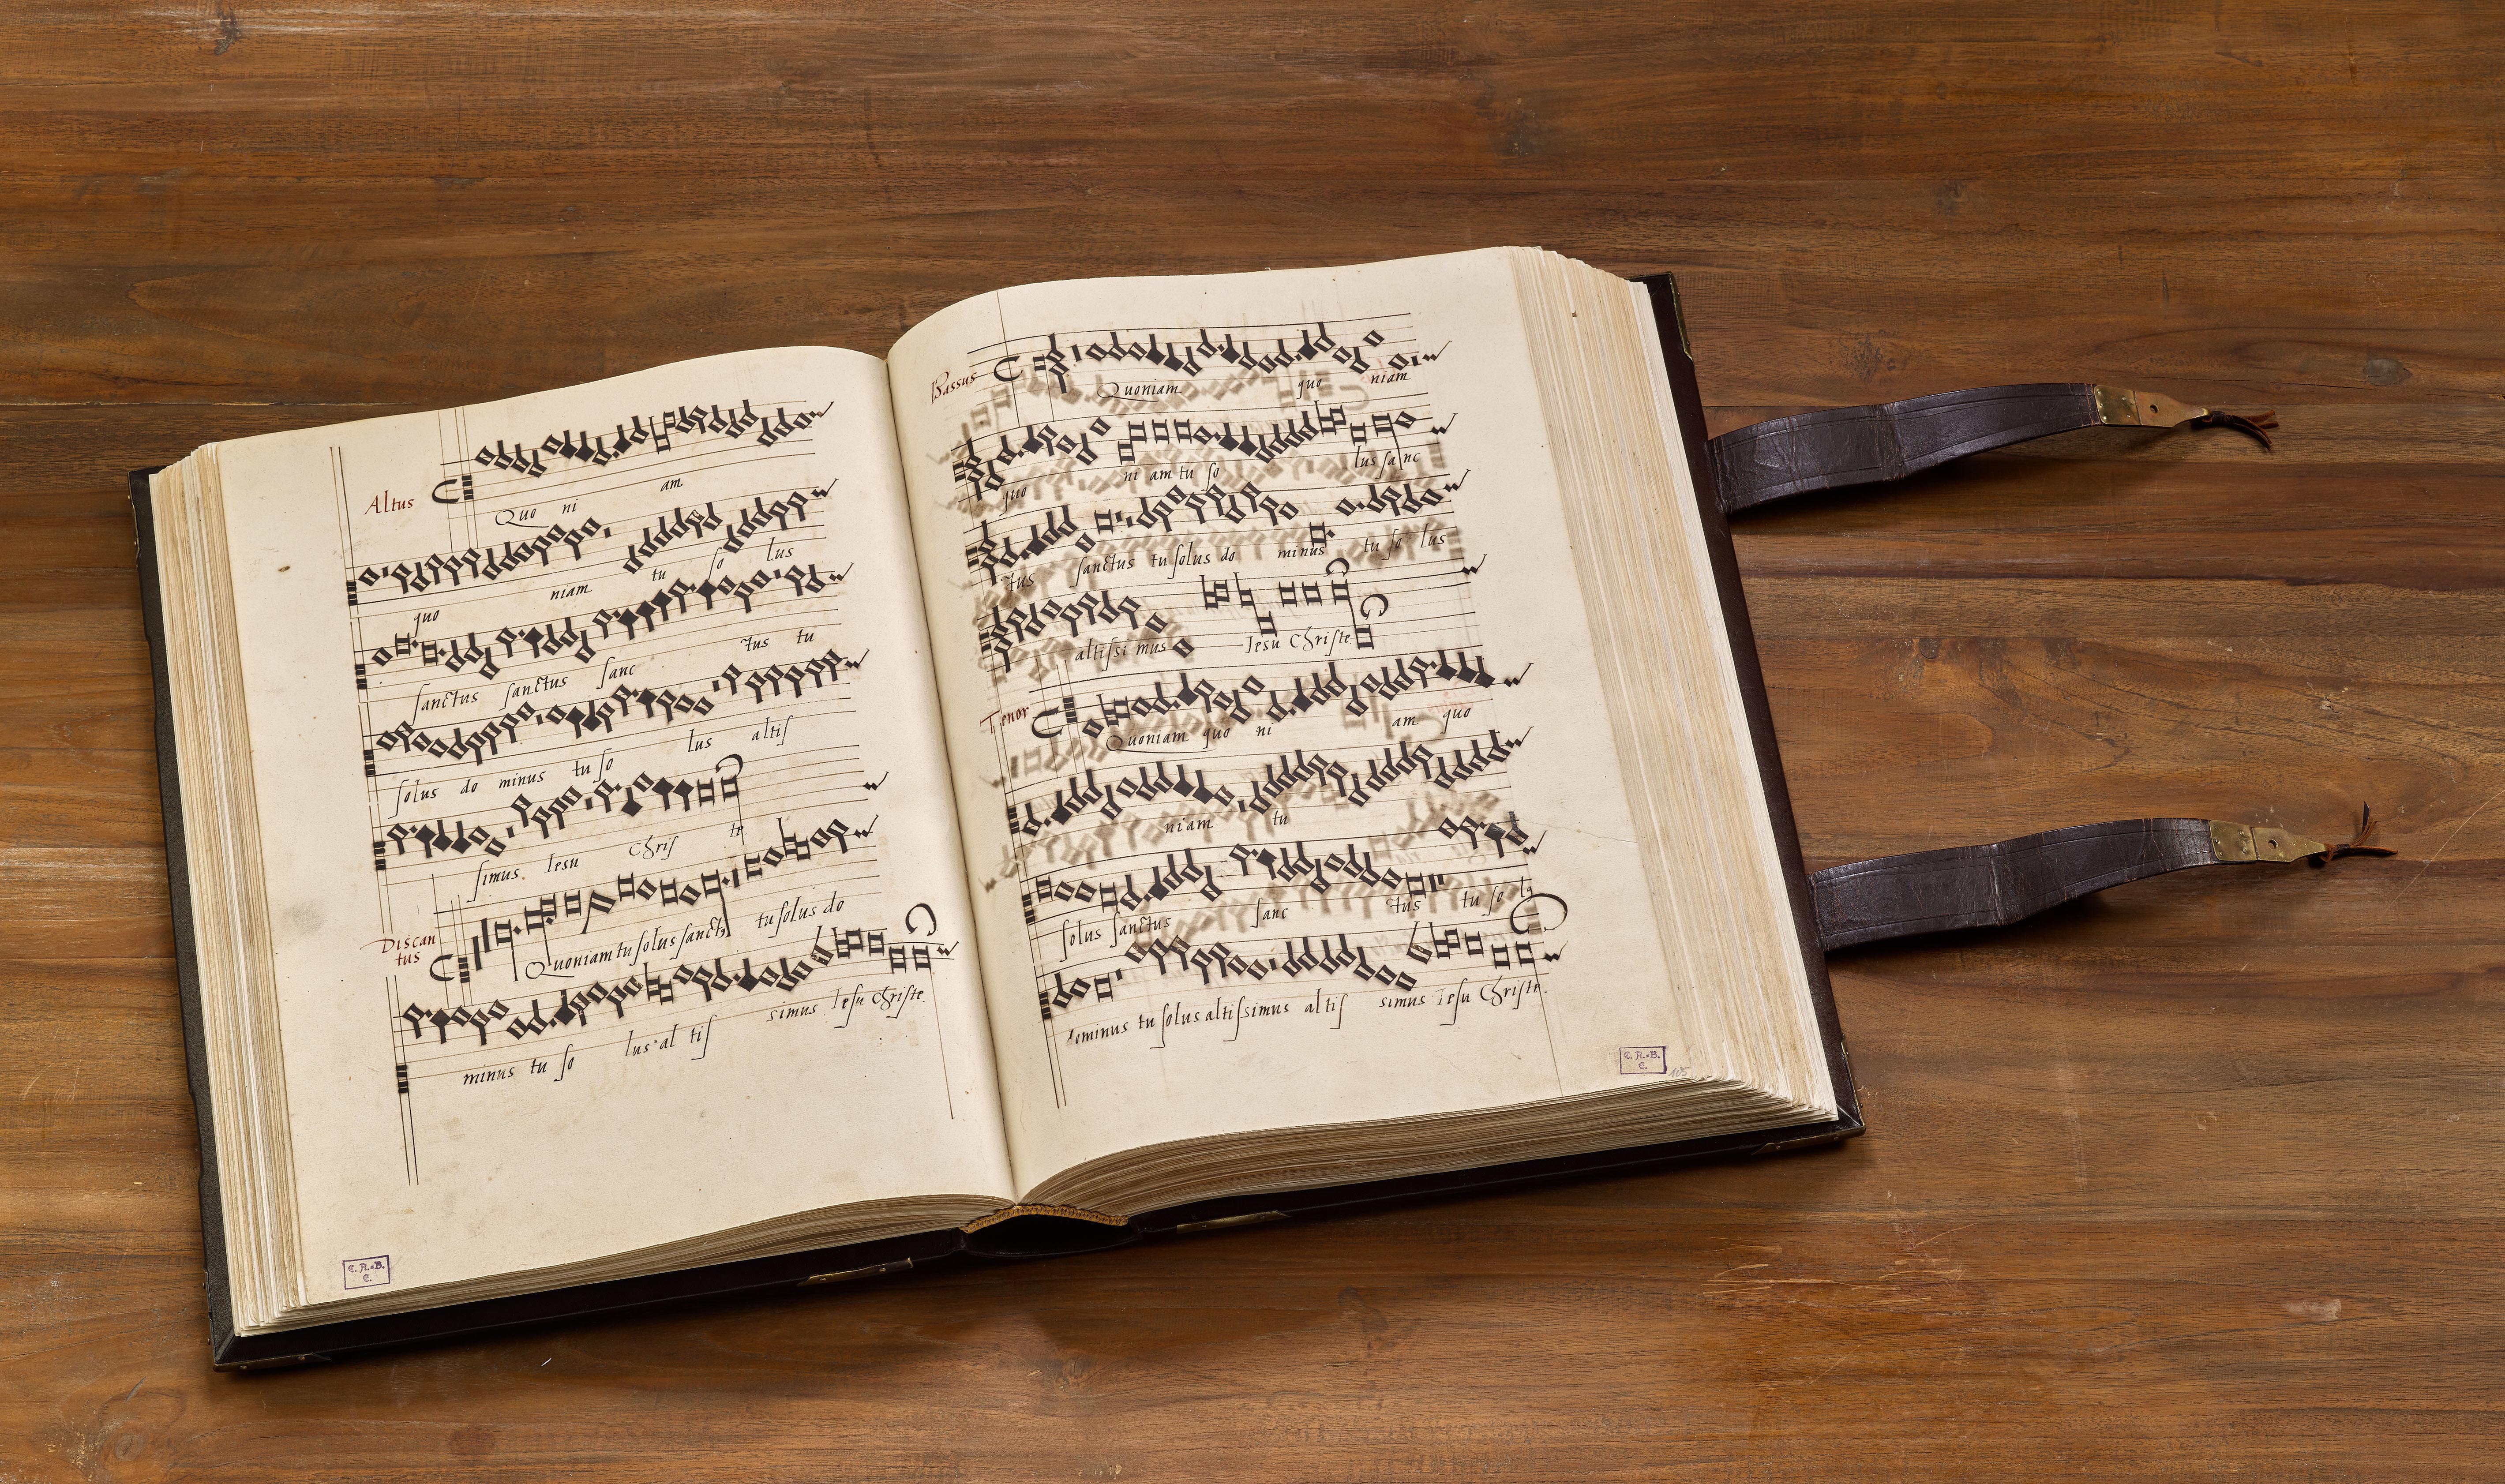 Altus
Quo ni am
quo niam tu so lus
sanctus sanctus sanc tus tu
solus do minus tu so lus altis
simus Iesu Chris te
Discan
tus
Quoniam tu solus sanctꝰ tu solus do
minus tu so lus al tis simus Iesu Christe.
C. A.-B.
C.
Bassus
Quoniam quo niam
quo ni am tu so lus sanc
tus sanctus tu solus do minus tu so lus
altissi mus Iesu Christe
Tenor
Quoniam quo ni am quo
niam tu
solus sanctus sanc tus tu so lꝰ
dominus tu solus altissimus altis simus Iesu Christe.
C. A.-B.
C.
105